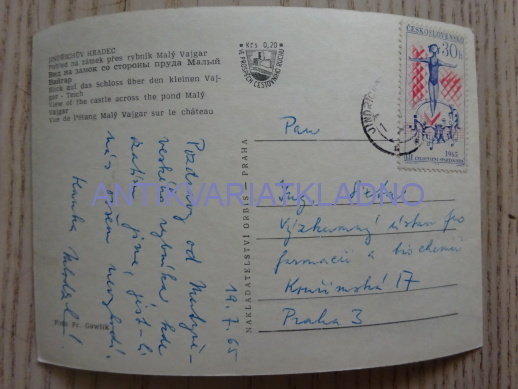 JINDŘICHŮV HRADEC
Pohled na zámek přes rybník Malý Vajgar
Вид на замок со стороны пруда Малый
Вайгар
Blick auf das Schloss über den kleinen Vaj-
gar - Teich
View of the castle across the pond Malý
Vajgar
Vue de l'étang Malý Vajgar sur le château
Kčs 0,20
VE PROSPĚCH CESTOVNÍHO RUCHU
ČESKOSLOVENSKO
30h
1965
III. CELOSTÁTNÍ SPARTAKIÁDA
19. 7. 65
Pozdravy od
rybníka kde
zatím jsme, jestli
nás sem
Hanka
Foto Fr. Gawlik
NAKLADATELSTVÍ ORBIS - PRAHA
Pan
Ing.
Výzkumný ústav pro
farmacii a biochemii
Kouřimská 17
Praha 3
ANTIKVARIATKLADNO